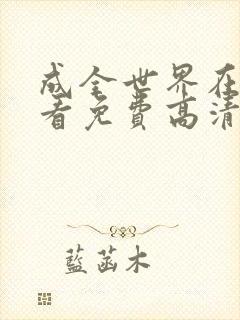 成全世界在
看免费高清
藍菡木